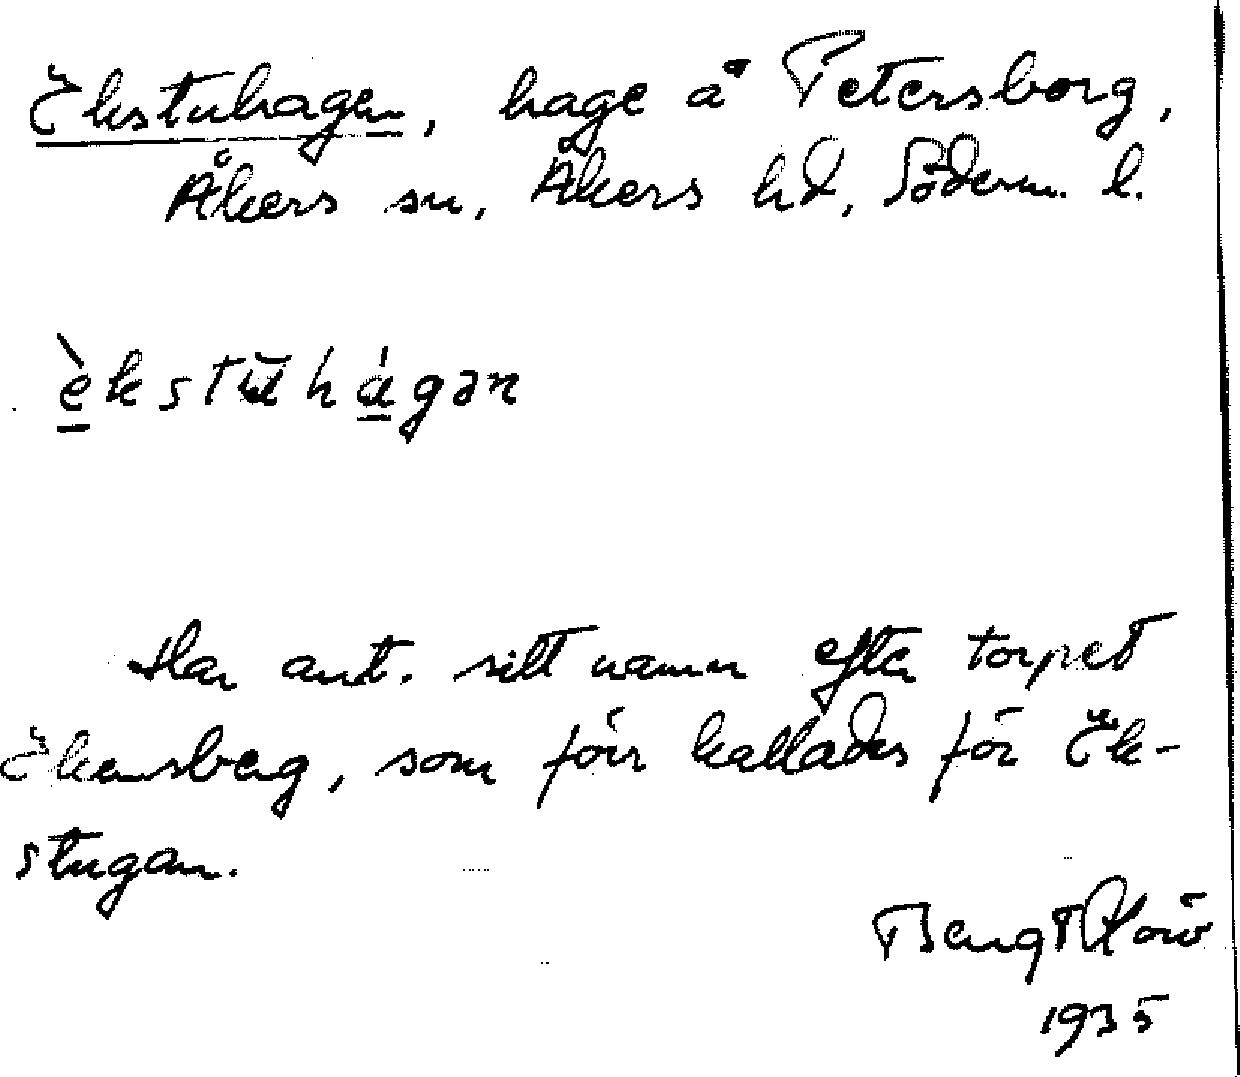 Ekstuhagen, hage å Petersborg,
Åkers sn, Åkers hd, Söderm. l.
èkstŭhágən
Har ant. sitt namn efter torpet
Ekensberg, som förr kallades för Ek-
stugan.
Bengt
1935